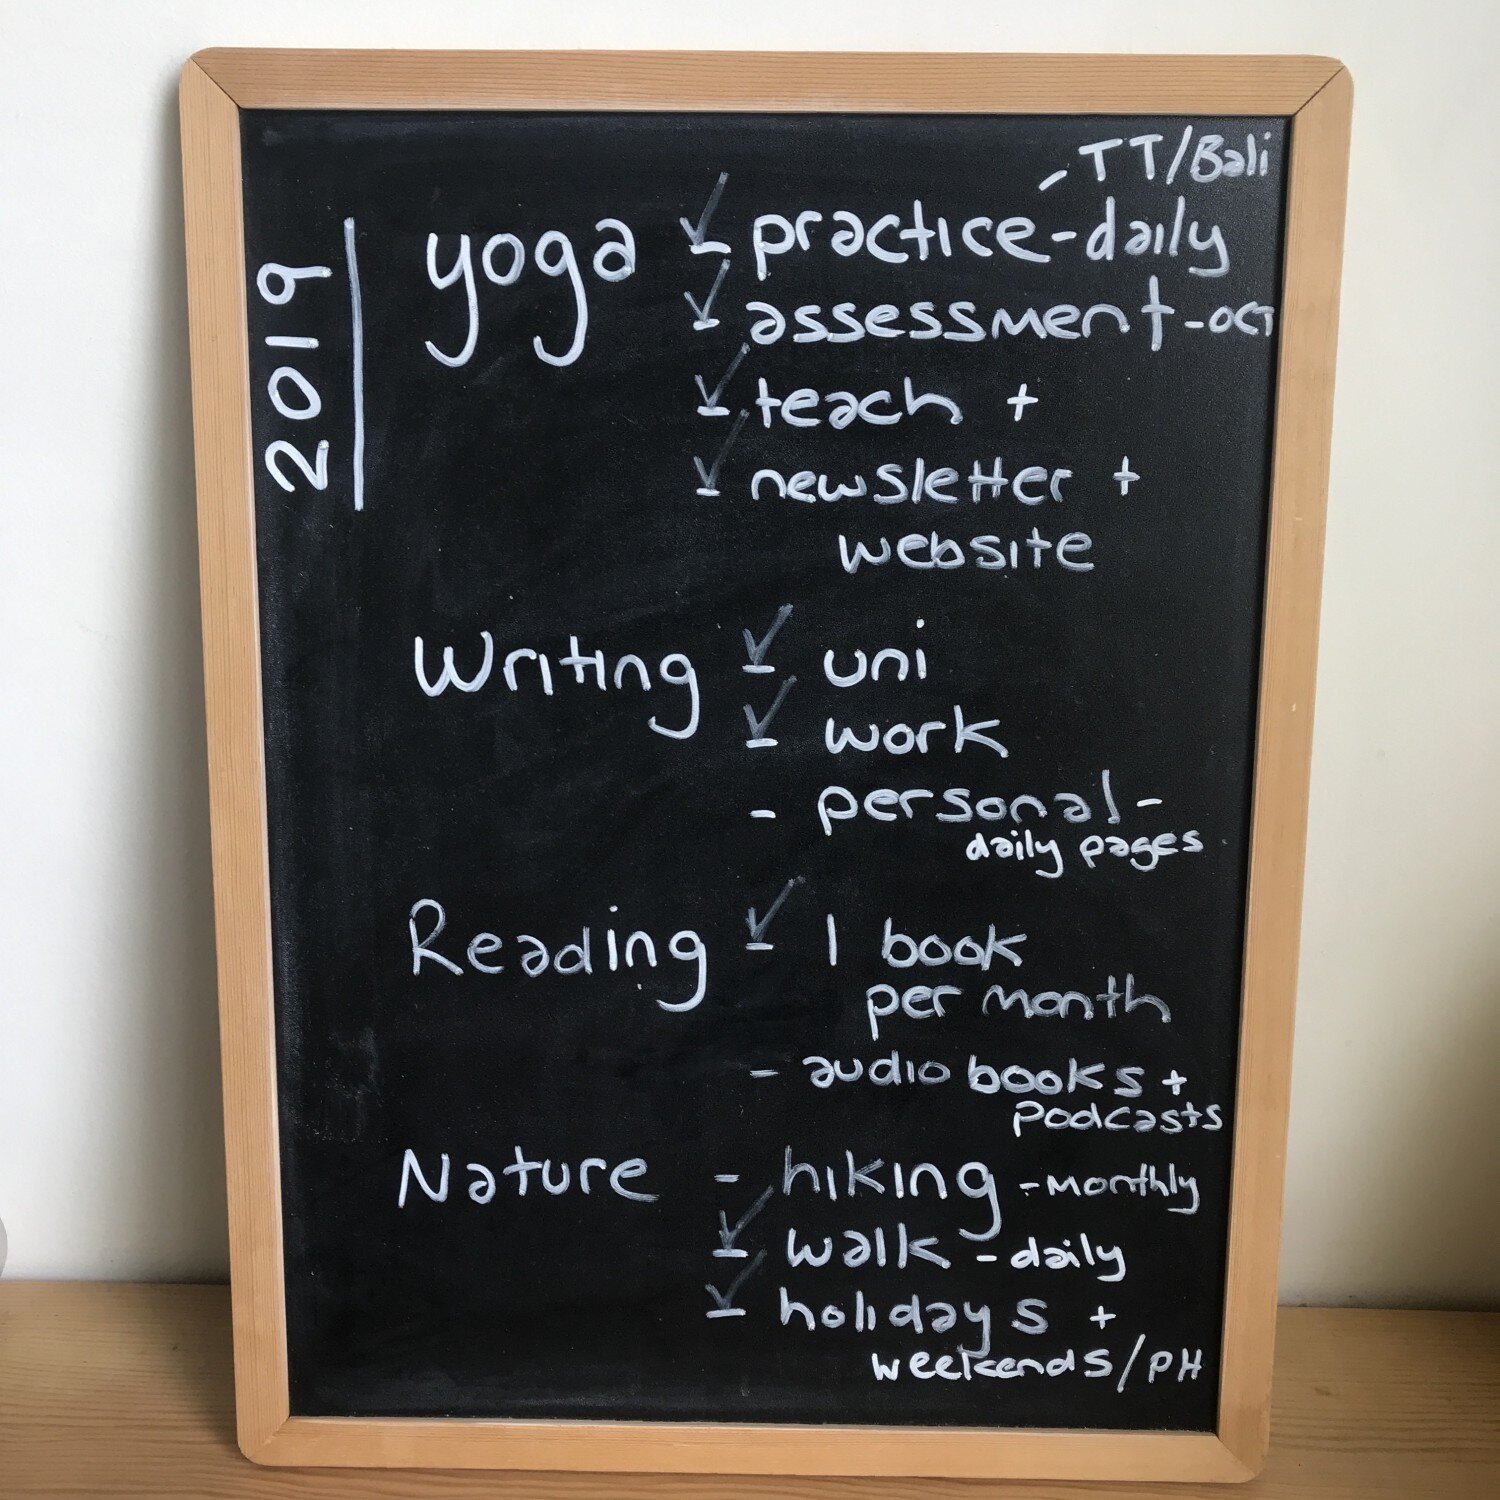 2019
- TT/Bali
yoga ✓- practice-daily
✓- assessment-OCT
✓- teach +
✓- newsletter +
website
Writing ✓- uni
✓- work
- personal-
daily pages
Reading ✓- 1 book
per month
- audio books +
Podcasts
Nature - hiking -monthly
✓- walk - daily
✓- holidays +
weekends/PH